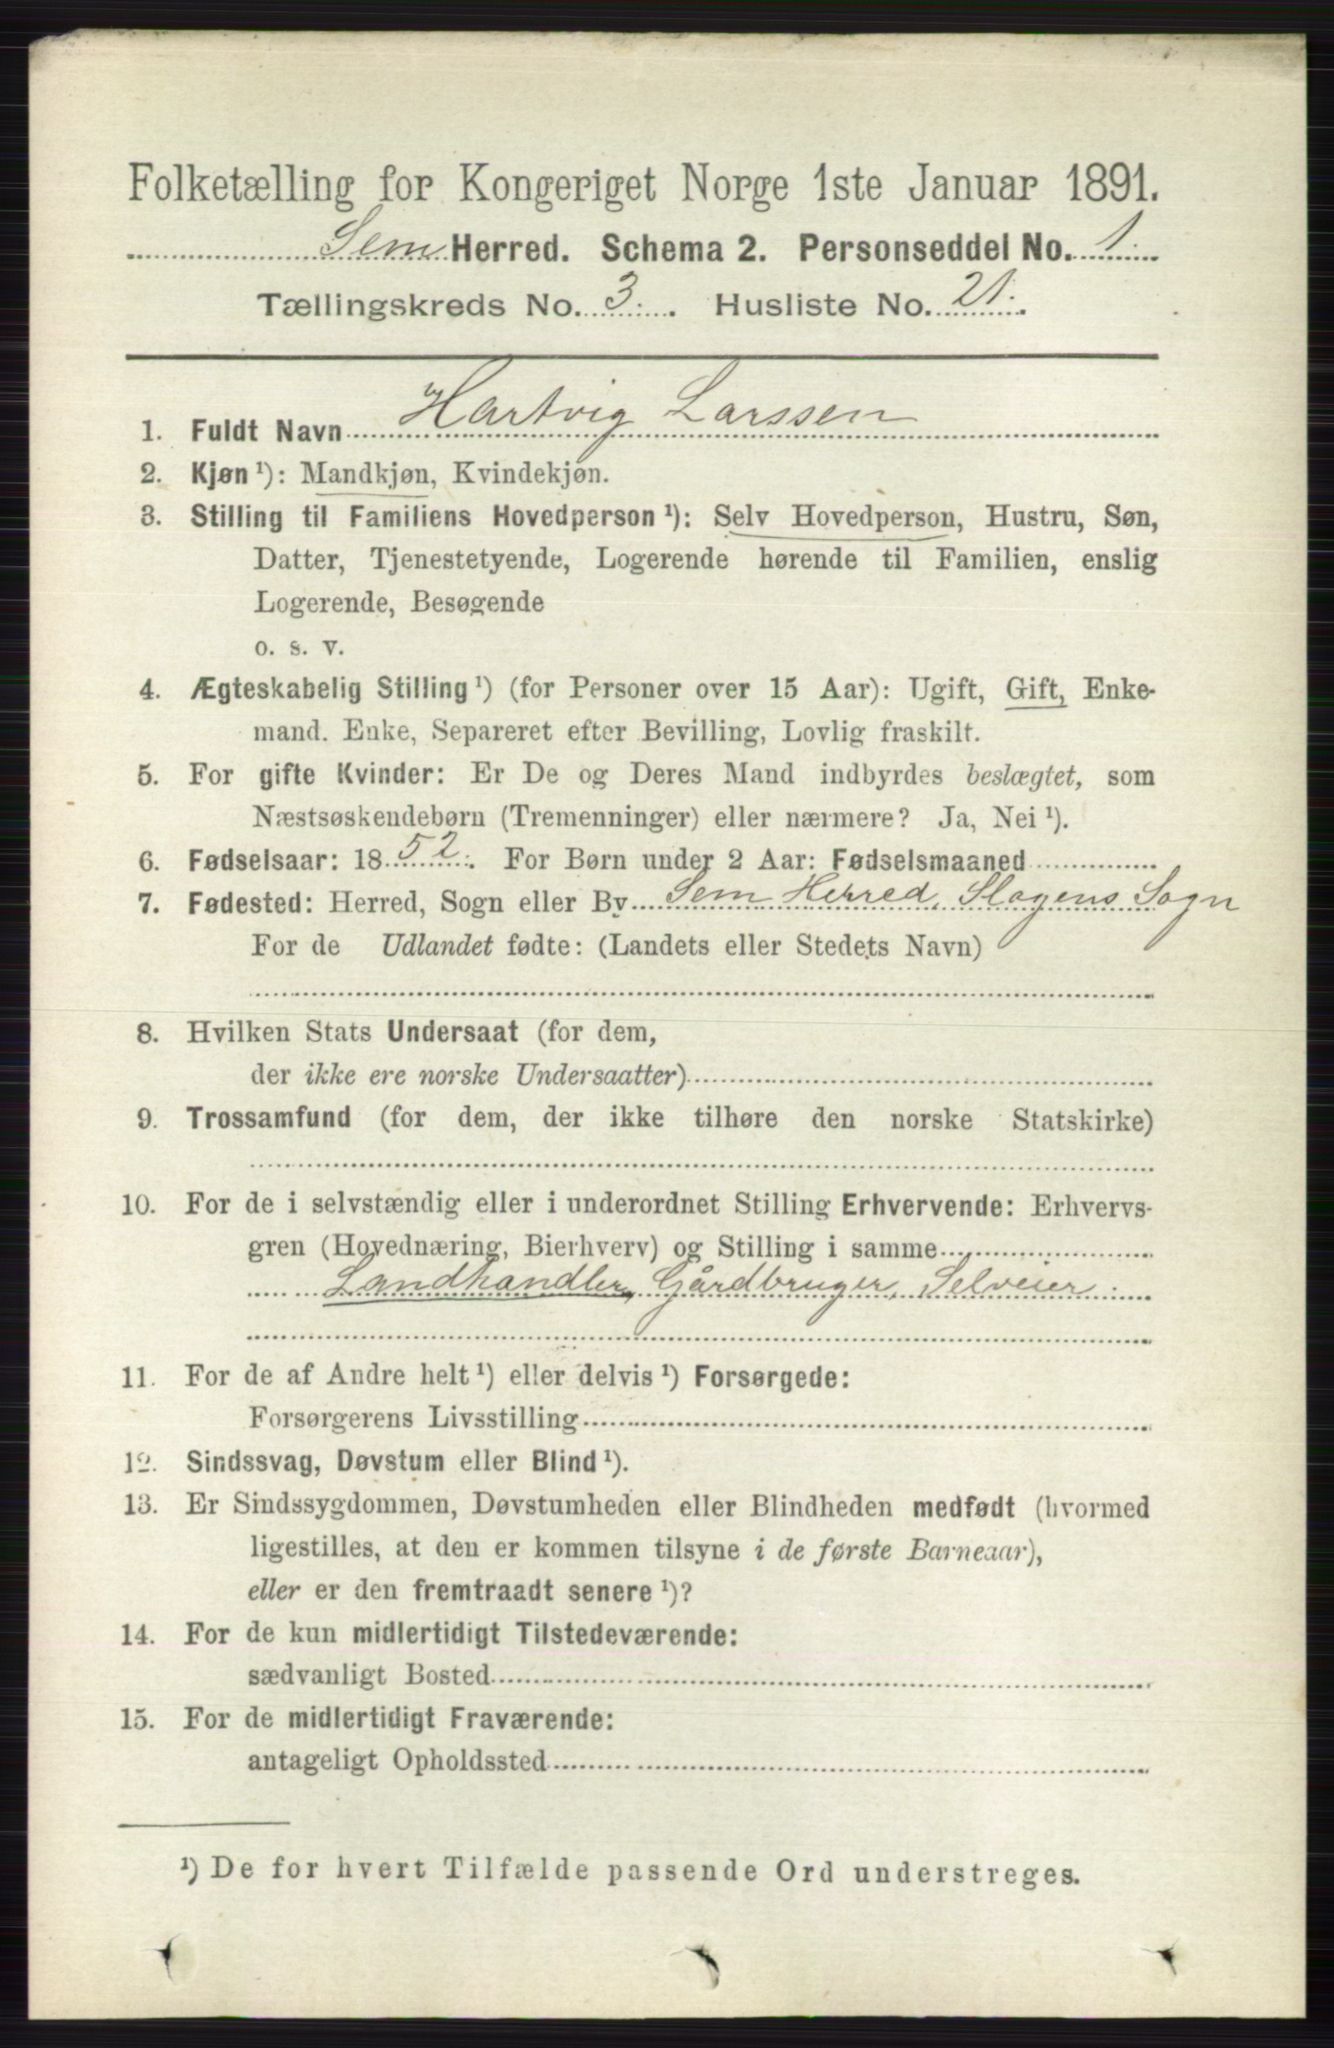 Folketælling for Kongeriget Norge 1ste Januar 1891.
Sem Herred. Schema 2. Personseddel No. 1.
Tællingskreds No. 3. Husliste No. 21.
1. Fuldt Navn Hartvig Larssen
2. Kjøn ¹): Mandkjøn, Kvindekjøn.
3. Stilling til Familiens Hovedperson ¹): Selv Hovedperson, Hustru, Søn,
Datter, Tjenestetyende, Logerende hørende til Familien, enslig
Logerende, Besøgende
o. s. v.
4. Ægteskabelig Stilling ¹) (for Personer over 15 Aar): Ugift, Gift, Enke-
mand. Enke, Separeret efter Bevilling, Lovlig fraskilt.
5. For gifte Kvinder: Er De og Deres Mand indbyrdes beslægtet, som
Næstsøskendebørn (Tremenninger) eller nærmere? Ja, Nei ¹).
6. Fødselsaar: 1852. For Børn under 2 Aar: Fødselsmaaned
7. Fødested: Herred, Sogn eller By Sem Herred, Slagens Sogn
For de Udlandet fødte: (Landets eller Stedets Navn)
8. Hvilken Stats Undersaat (for dem,
der ikke ere norske Undersaatter)
9. Trossamfund (for dem, der ikke tilhøre den norske Statskirke)
10. For de i selvstændig eller i underordnet Stilling Erhvervende: Erhvervs-
gren (Hovednæring, Bierhverv) og Stilling i samme
Landhandler, Gårdbruger, Selveier.
11. For de af Andre helt ¹) eller delvis ¹) Forsørgede:
Forsørgerens Livsstilling
12. Sindssvag, Døvstum eller Blind ¹).
13. Er Sindssygdommen, Døvstumheden eller Blindheden medfødt (hvormed
ligestilles, at den er kommen tilsyne i de første Barneaar),
eller er den fremtraadt senere ¹)?
14. For de kun midlertidigt Tilstedeværende:
sædvanligt Bosted
15. For de midlertidigt Fraværende:
antageligt Opholdssted
¹) De for hvert Tilfælde passende Ord understreges.